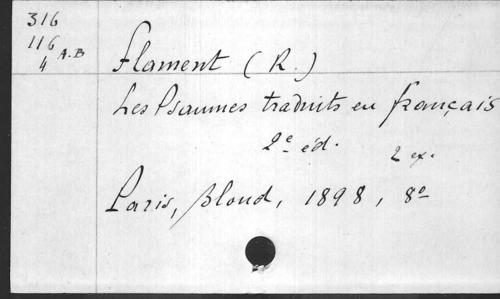 316
116 A.B
4
Flament (R.)
Les Psaumes traduits en français
2e éd.
2 ex.
Paris, Bloud, 1898, 8o